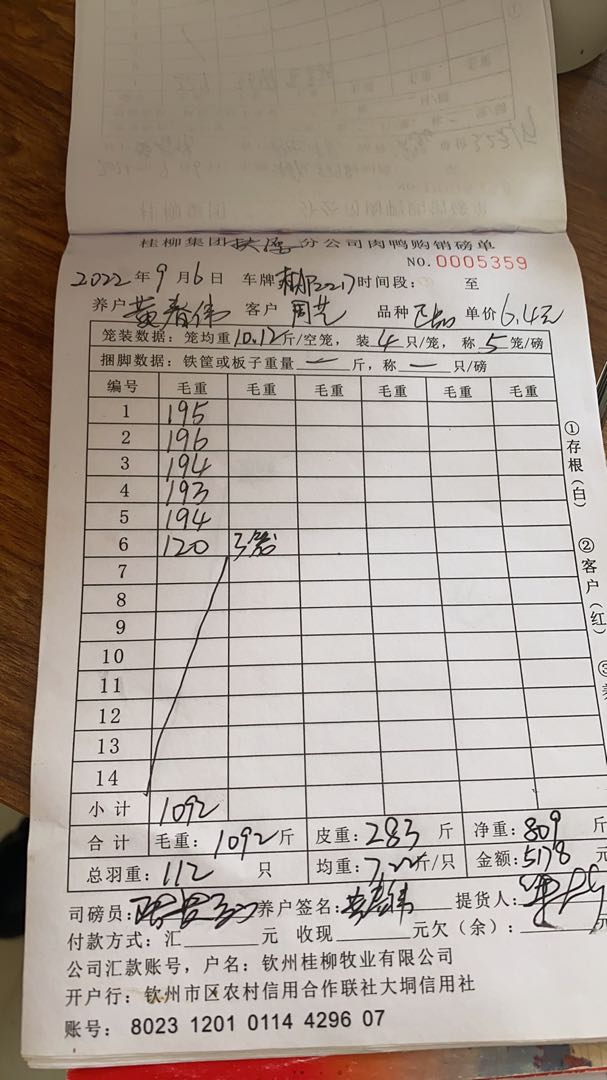 桂柳集团 分公司肉鸭购销磅单
NO.0005359
2022年9月6日 车牌 时间段: 至
养户黄春伟 客户 周艺 品种 单价6.4元
笼装数据:笼均重10.12斤/空笼,装4只/笼,称5笼/磅
捆脚数据:铁筐或板子重量一斤,称一只/磅
编号 毛重 毛重 毛重 毛重 毛重 毛重
1 195
2 196
3 194
4 193
5 194
6 120 3笼
7
8
9
10
11
12
13
14
小计 1092
合计 毛重:1092斤 皮重:283斤 净重:809斤
总羽重:112只 均重:7.22斤/只 金额:5178元
司磅员: 养户签名:黄春伟 提货人:
付款方式:汇 元 收现 元欠(余): 元
公司汇款账号,户名:钦州桂柳牧业有限公司
开户行:钦州市区农村信用合作联社大垌信用社
账号:8023 1201 0114 4296 07
①存根(白)
②客户(红)
③